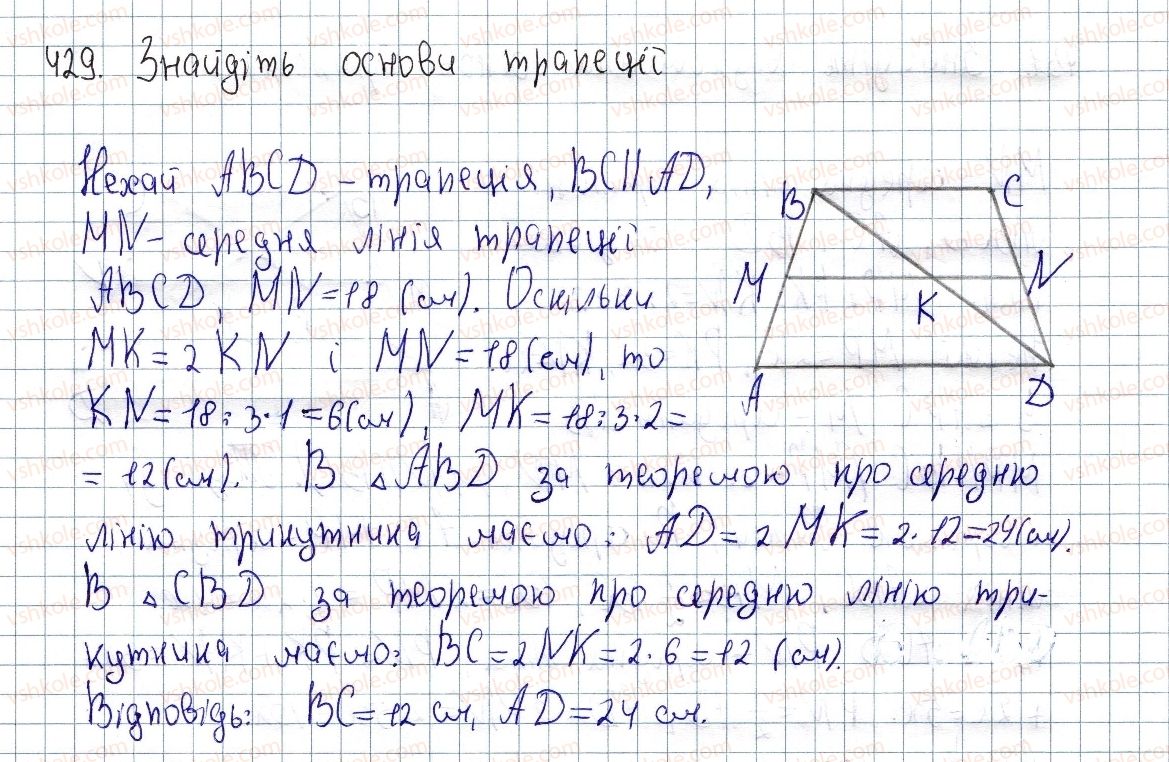 429. Знайдіть основи трапеції
Нехай ABCD - трапеція, BC||AD,
MN - середня лінія трапеції
ABCD, MN = 18 (см). Оскільки
MK = 2 KN і MN = 18 (см), то
KN = 18 : 3 · 1 = 6 (см), MK = 18 : 3 · 2 =
= 12 (см). В △ABD за теоремою про середню
лінію трикутника маємо: AD = 2 MK = 2 · 12 = 24 (см).
В △CBD за теоремою про середню лінію три-
кутника маємо: BC = 2 NK = 2 · 6 = 12 (см).
Відповідь: BC = 12 см, AD = 24 см.
B
C
M
N
K
A
D
vshkole.com